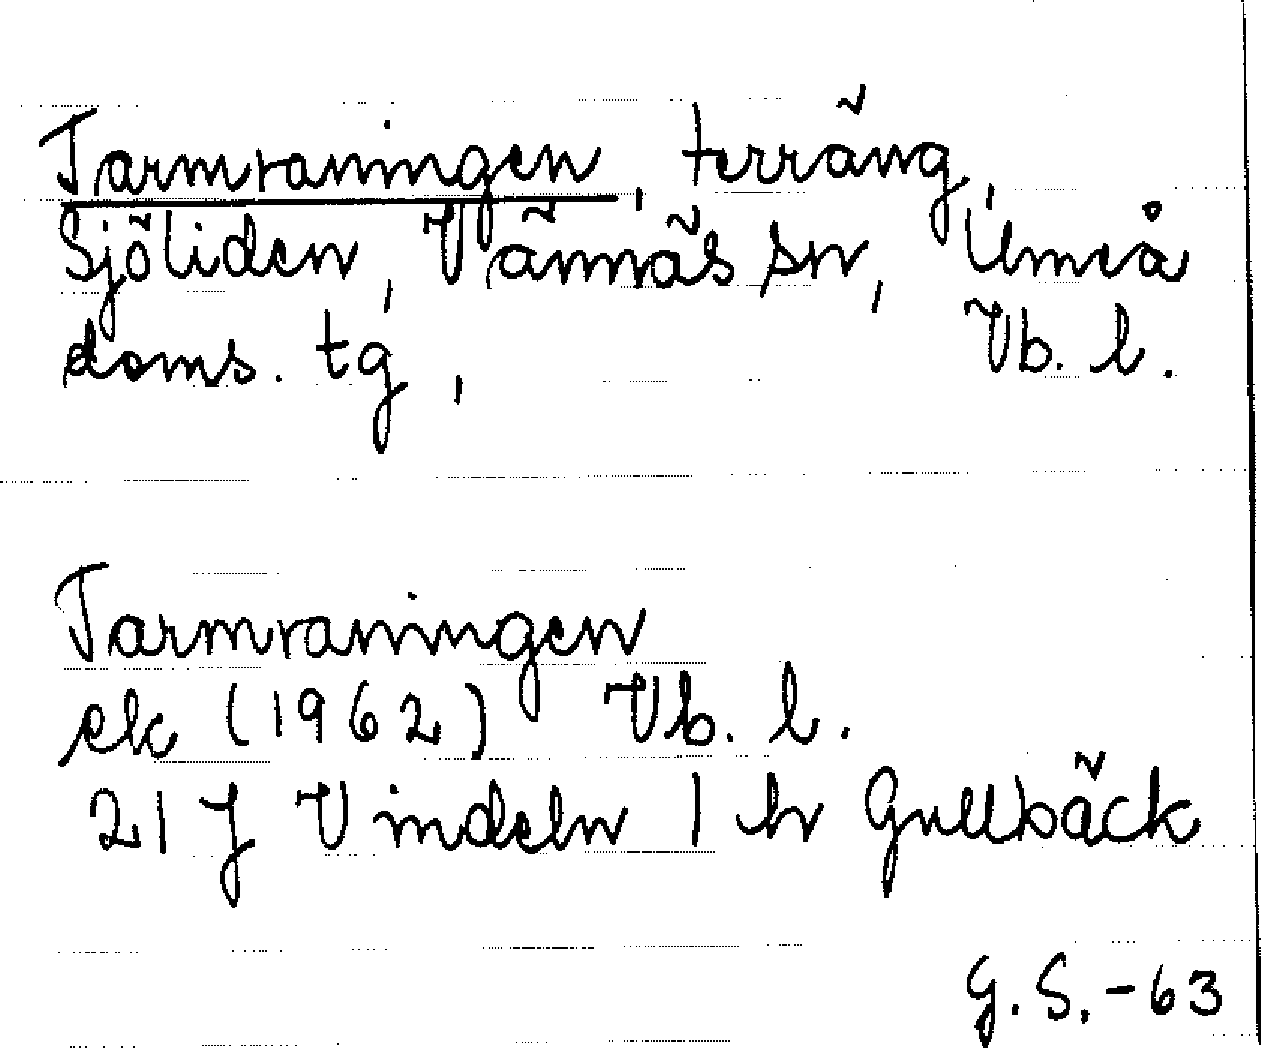 Tarmraningen, terräng,
Sjöliden, Vännäs sn, Umeå
doms. tg, Vb. l.
Tarmraningen
ek (1962) Vb. l.
21 J Vindeln 1 h Gullbäck
G. S. -63